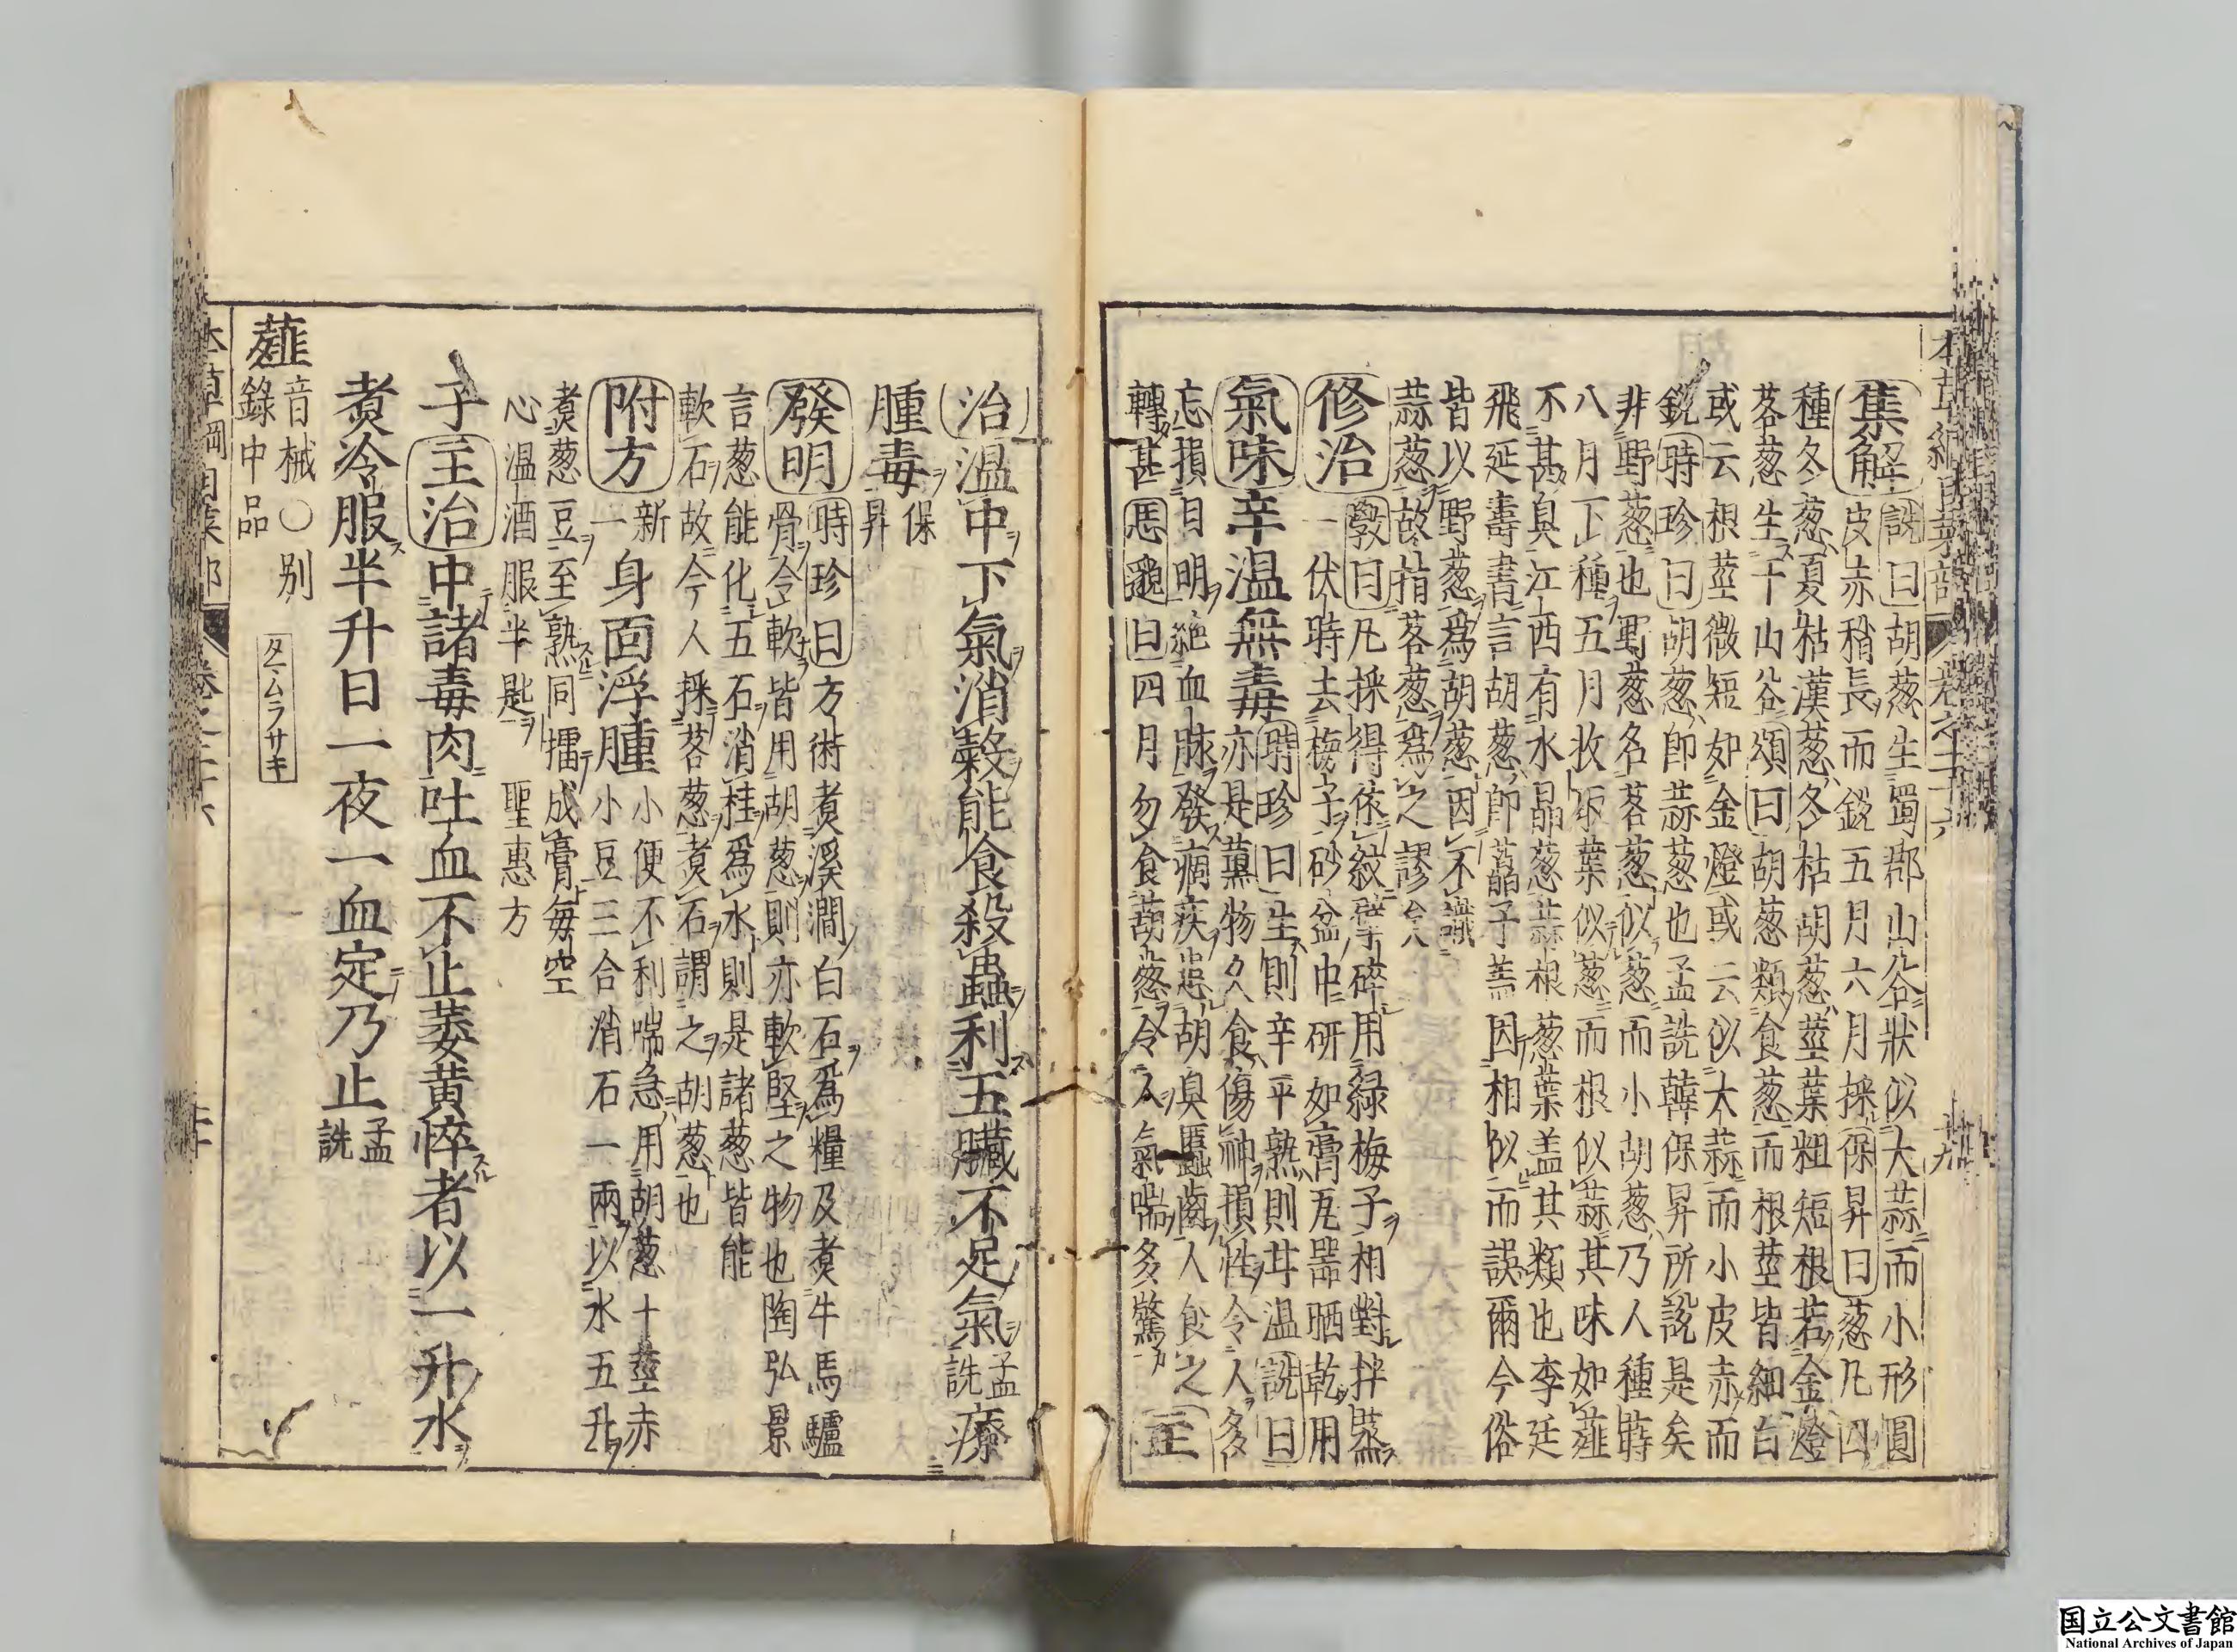 本草綱目菜部 卷之二十六 十九
集解 詵曰胡葱生蜀郡山谷狀似大蒜而小形圓
皮赤稍長而銳五月六月採保昇曰葱凡四
種冬葱夏枯漢葱冬枯胡葱莖葉粗短根若金燈
茖葱生于山谷頌曰胡葱類食葱而根莖皆細白
或云根莖微短如金燈或云似大蒜而小皮赤而
銳時珍曰胡葱即蒜葱也孟詵韓保昇所說是矣
非野葱也野葱名茖葱似葱而小胡葱乃人種蒔
八月下種五月收取葉似葱而根似蒜其味如薤
不甚臭江西有水晶葱蒜根葱葉盖其類也李廷
飛延壽書言胡葱即䔉子盖因相似而誤爾今俗
皆以野葱為胡葱因不識
蒜葱故指茖葱為之謬矣
修治 斅曰凡採得依紋擘碎用緑梅子相對拌蒸
一伏時去梅子砂盆中研如膏瓦器晒乾用
氣味辛温無毒時珍曰生則辛平熟則甘温詵曰
亦是薰物久食傷神損性令人多
忘損目明絕血脉發痼疾患胡臭䘌齒人食之
轉甚思邈曰四月勿食葫葱令人氣喘多驚 主
治温中下氣消穀能食殺蟲利五臟不足氣孟詵療
腫毒保昇
發明 時珍曰方術煮溪澗白石爲糧及煮牛馬驢
骨令軟皆用胡葱則亦軟堅之物也陶弘景
言葱能化五石消桂爲水則是諸葱皆能
軟石故今人採茖葱煮石謂之胡葱也
附方 新一身面浮腫小便不利喘急用胡葱十莖赤
小豆三合消石一兩以水五升
煮葱豆至熟同擂成膏每空
心温酒服半匙 聖惠方
子主治中諸毒肉吐血不止萎黃悴者以一升水
煑冷服半升日一夜一血定乃止孟詵
薤 音械○別錄中品 タニムラサキ
本草綱目菜部 卷之二十六 二十
国立公文書館
National Archives of Japan